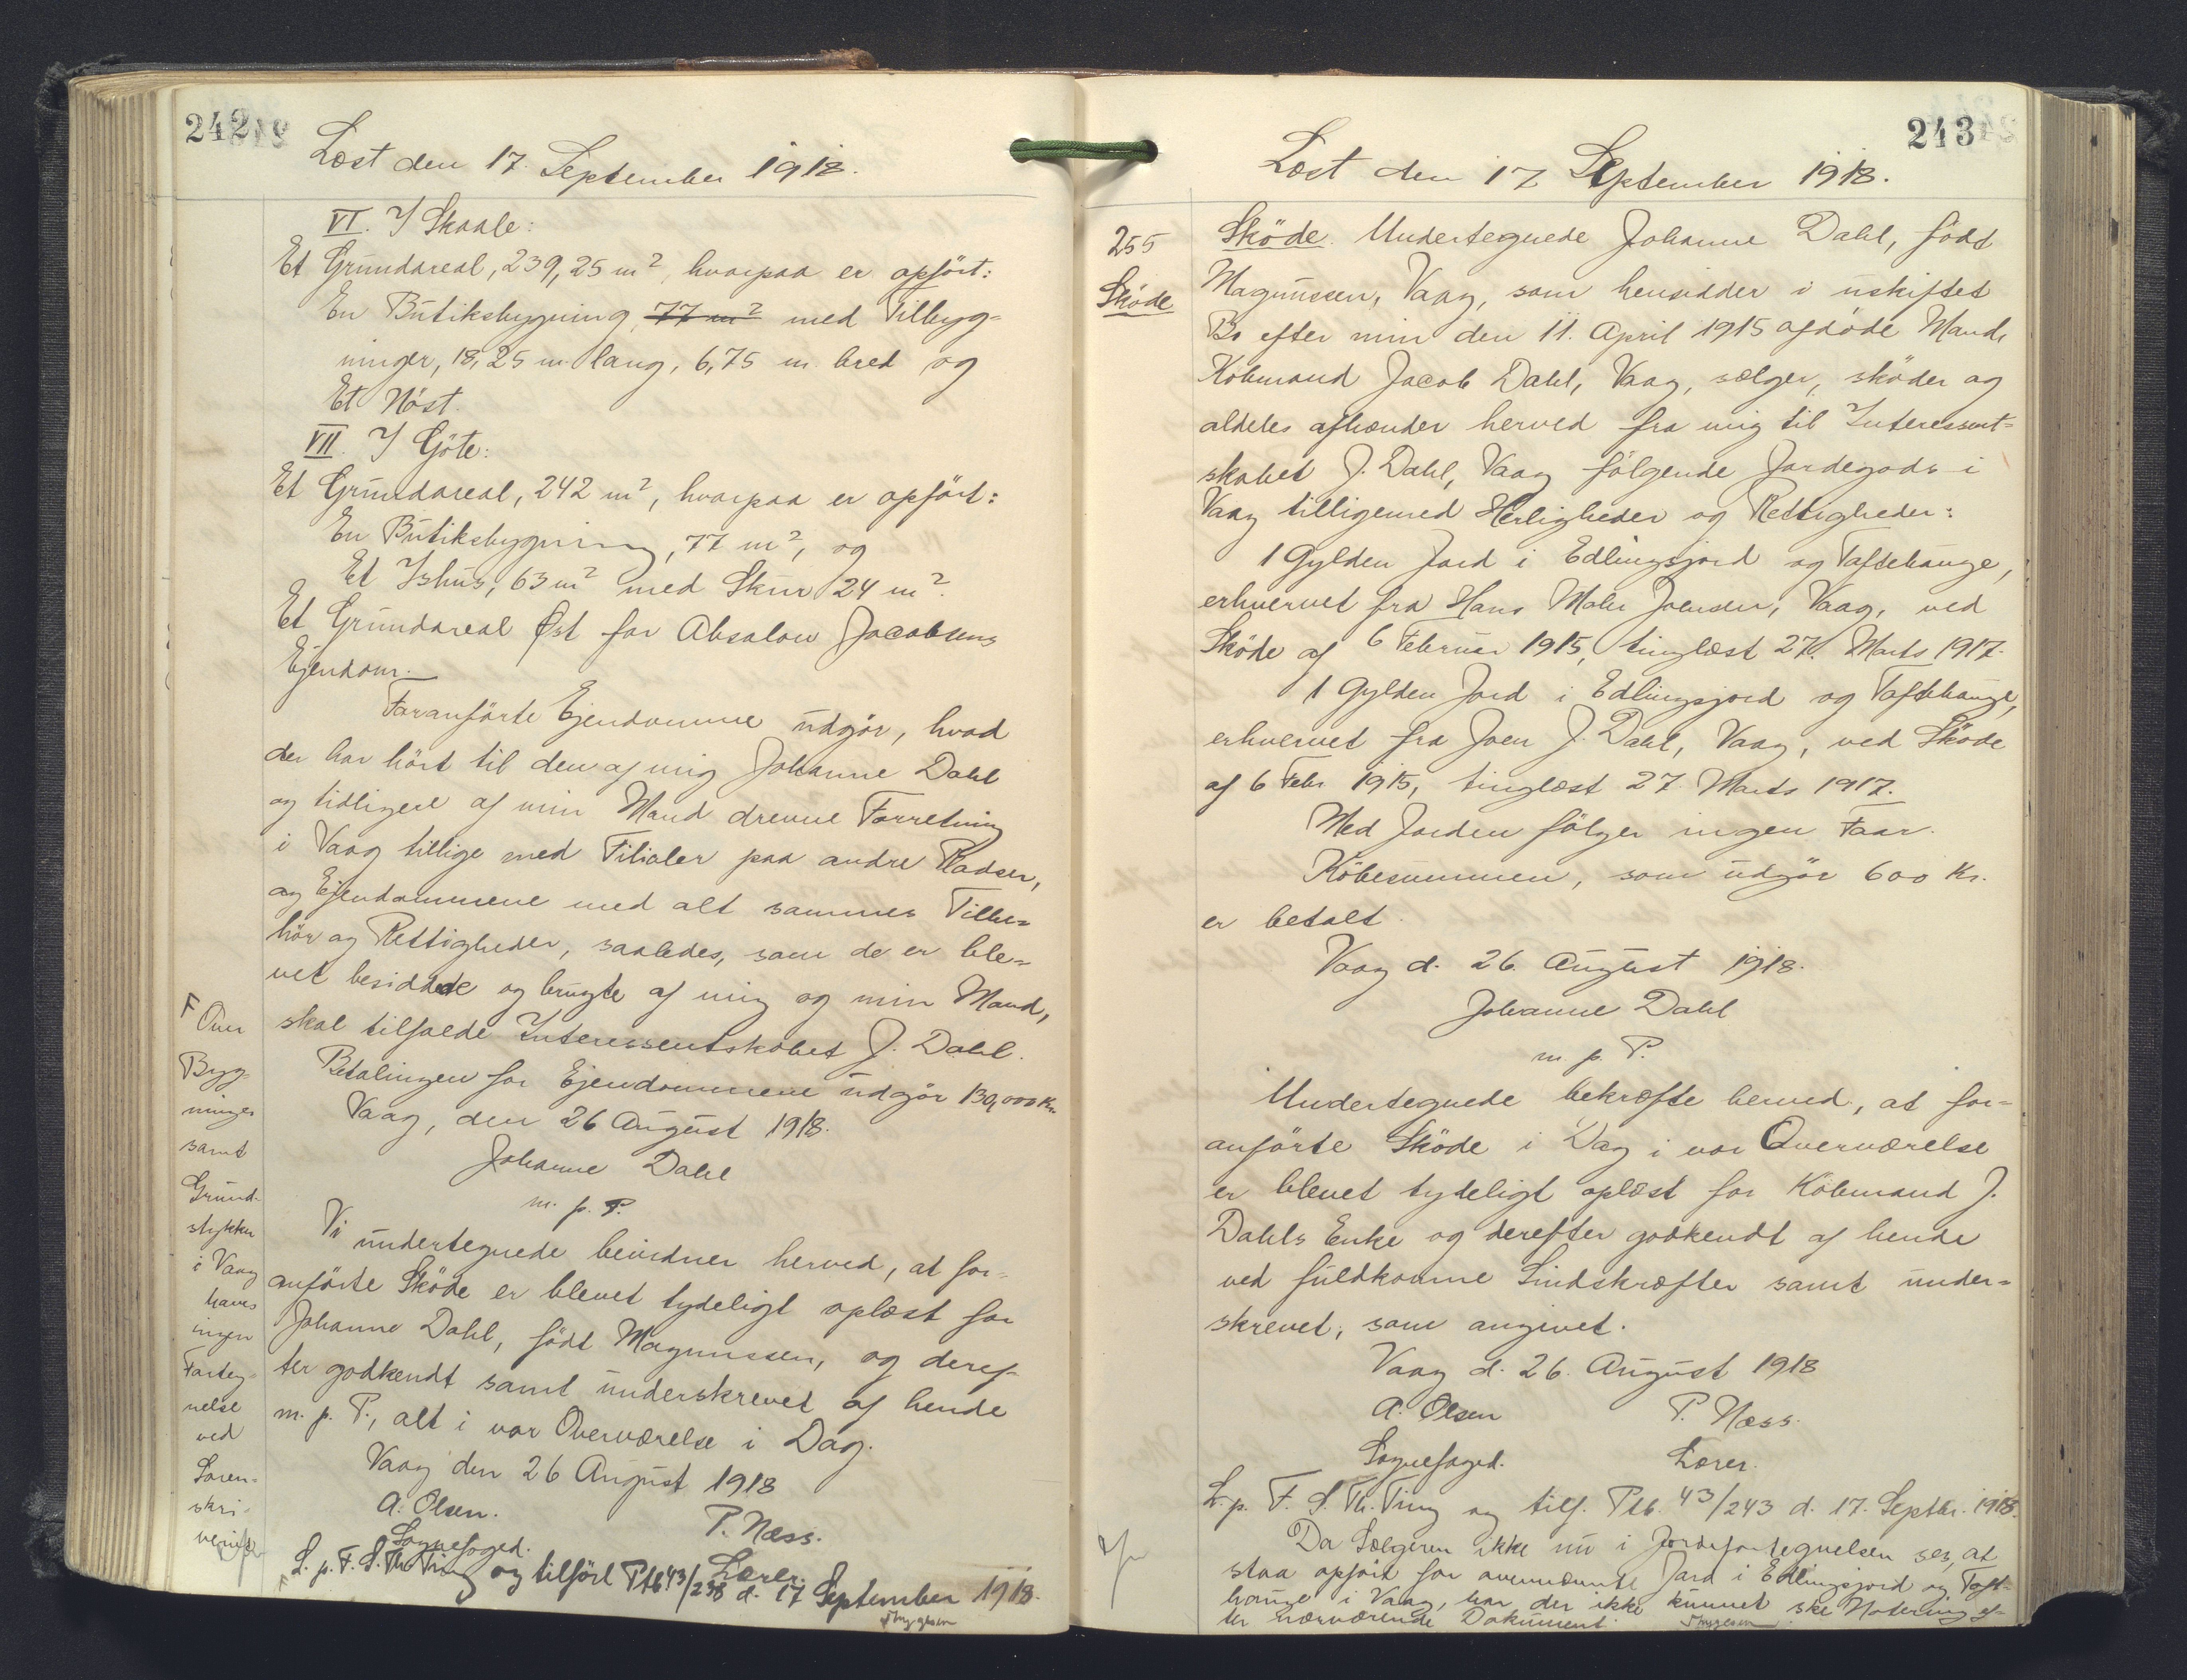 242
Læst den 17. September 1918.
VI. I Skaale:
Et Grundareal, 239,25 m², hvorpaa er opført:
En Butiksbygning, 77 m² med Tilbyg-
ninger, 18,25 m lang, 6,75 m bred og
Et Nöst.
VII. I Göte:
Et Grundareal, 242 m², hvorpaa er opfört:
En Butiksbygning, 77 m², og
Et Ishus, 63 m² med Skur 24 m².
Et Grundareal Øst for Absalon Jacobsens
Ejendom.
Foranförte Ejendomme udgör, hvad
der har hört til den af mig Johanne Dahl
og tidligere af min Mand drevne Forretning
i Vaag tillige med Filialer paa andre Pladser,
og Ejendommene med alt sammes Tilbe-
hör og Rettigheder, saaledes, som de er ble-
vet besiddede og brugte af mig og min Mand,
skal tilfalde Interessentskabet J. Dahl.
Betalingen for Ejendommene udgör 130,000 Kr.
Vaag, den 26 August 1918.
Johanne Dahl
m. p. P.
Vi undertegnede bevidner herved, at for-
anförte Sköde er blevet tydeligt oplæst for
Johanne Dahl, födt Magnussen, og deref-
ter godkendt samt underskrevet af hende
m. p. P., alt i vor Overværelse i Dag.
Vaag den 26 August 1918
A. Olsen. P. Næss.
Sognefoged. Lærer.
L. p. F. S. Th. Ting og tilfört Ptb 43/238 d. 17 September 1918.
Thygesen
F Over
Byg-
ninger
samt
Grund-
stykker
i Vaag
haves
ingen
Forteg-
nelse
ved
Soren-
skri-
veriet
243
Læst den 17 September 1918.
255
Sköde
Sköde. Undertegnede Johanne Dahl, födt
Magnussen, Vaag, som hensidder i uskiftet
Bo efter min den 11. April 1915 afdöde Mand,
Köbmand Jacob Dahl, Vaag, sælger, sköder og
aldeles afhænder herved fra mig til Interessent-
skabet J. Dahl, Vaag fölgende Jordegods i
Vaag tilligemed Herligheder og Rettigheder:
1 Gylden Jord i Edlingsjord og Toftehauge,
erhvervet fra Hans Mohr Joensen, Vaag, ved
Sköde af 6 Februar 1915, tinglæst 27. Marts 1917.
1 Gylden Jord i Edlingsjord og Toftehauge,
erhvervet fra Joen J. Dahl, Vaag, ved Sköde
af 6 Febr 1915, tinglæst 27 Marts 1917.
Med Jorden fölger ingen Faar.
Köbesummen, som udgör 600 Kr.
er betalt.
Vaag d. 26. August 1918.
Johanne Dahl
m. p. P.
Undertegnede bekræfte herved, at for-
anförte Sköde i Dag i vor Overværelse
er blevet tydeligt oplæst for Köbmand J.
Dahls Enke og derefter godkendt af hende
ved fuldkomne Sindskræfter samt under-
skrevet, som angivet.
Vaag d. 26. August 1918
A. Olsen P. Næss.
Sognefoged. Lærer.
L. p. F. S. Th. Ting og tilf. Ptb. 43/243 d. 17. Septbr. 1918.
Da Sælgeren ikke nu i Jordefortegnelsen ses, at
staa opfört for ovennævnte Jord i Edlingsjord og Toft-
hauge i Vaag, har der ikke kunnet ske Notering ef-
ter nærværende Dokument. Thygesen